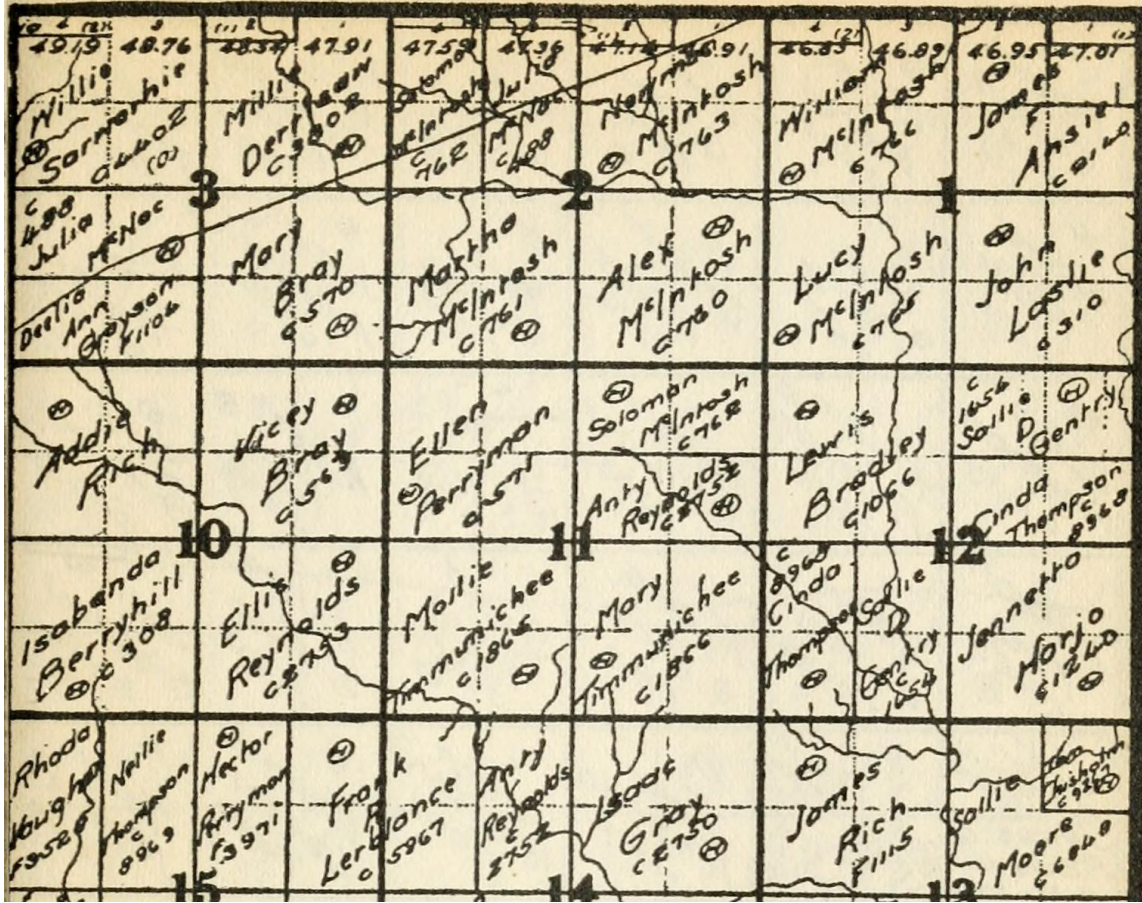 49.19 48.76 47.91 47.59 46.91 46.83 46.89 46.95 47.01
Willie
(0)
Millie
Derrisaw
Solomon
McIntosh
C
762
Julia
McNac
C
488
Norma
McIntosh
763
William
McIntosh
C 766
James
F
Ansiel
3
2
1
C
488
Julia
McNac
Deelia
Ann
Grayson
F1106
Mary
Bray
C 570
Martha
McIntosh
C 761
Alex
McIntosh
C 760
Lucy
McIntosh
C 765
John
Laslie
C 310
Addie
Rich
Vicey
Bray
C 569
Ellen
Perryman
C 571
Soloman
McIntosh
C 762
Anty
Reynolds
C 2752
Lewis
Bradley
C1066
C
1656
Sallie
D
Gentry
Cinda
Thompson
C
8968
10
11
12
Isabenda
Berryhill
C 308
Ellis
Reynolds
C 2753
Mollie
Timmunichee
C 1865
Mary
Timmunichee
C 1866
C
8968
Cinda
Thompson
Sallie
D
Gentry
Jennetta
Harjo
C 1240
Rhoda
Vaughan
F352
Nellie
Thompson
C
8969
Hector
Perryman
F3971
Frank
Lerblance
C 5967
Anty
Reynolds
C
2752
Isaac
Gray
C 2750
James
Rich
F1115
Sallie
Moore
C 6848
Chisholm
15
14
13